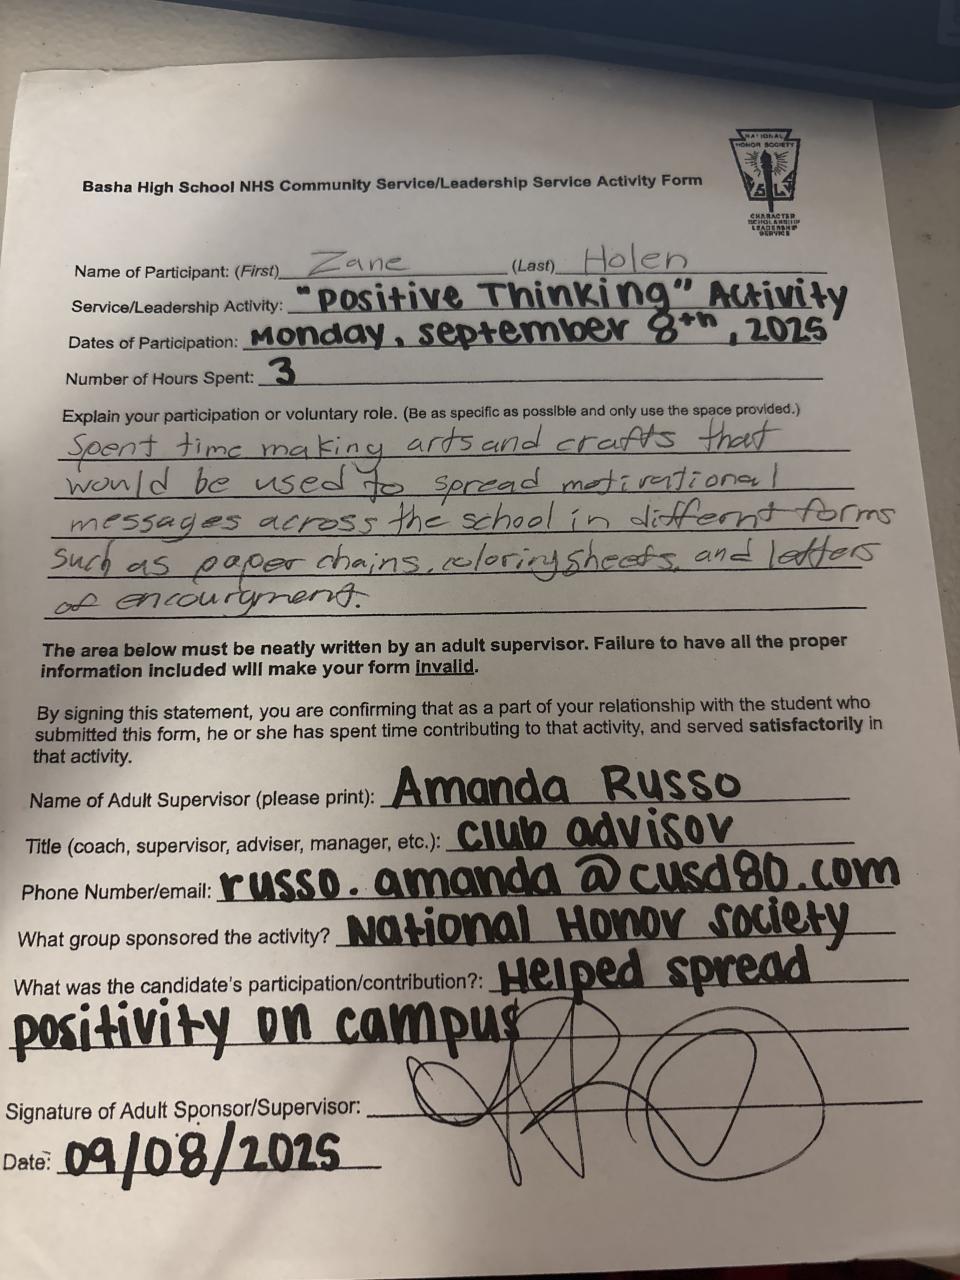 NATIONAL
HONOR SOCIETY
CHARACTER
SCHOLARSHIP
LEADERSHIP
SERVICE
Basha High School NHS Community Service/Leadership Service Activity Form
Name of Participant: (First) Zane (Last) Holen
Service/Leadership Activity: "Positive Thinking" Activity
Dates of Participation: Monday, september 8th, 2025
Number of Hours Spent: 3
Explain your participation or voluntary role. (Be as specific as possible and only use the space provided.)
Spent time making arts and crafts that
would be used to spread motivational
messages across the school in differnt forms
such as paper chains, coloring sheets, and letters
of encourgment.
The area below must be neatly written by an adult supervisor. Failure to have all the proper
information included will make your form invalid.
By signing this statement, you are confirming that as a part of your relationship with the student who
submitted this form, he or she has spent time contributing to that activity, and served satisfactorily in
that activity.
Name of Adult Supervisor (please print): Amanda Russo
Title (coach, supervisor, adviser, manager, etc.): club advisor
Phone Number/email: russo.amanda@cusd80.com
What group sponsored the activity? National Honor Society
What was the candidate's participation/contribution?: Helped spread
positivity on campus
Signature of Adult Sponsor/Supervisor:
Date: 09/08/2025